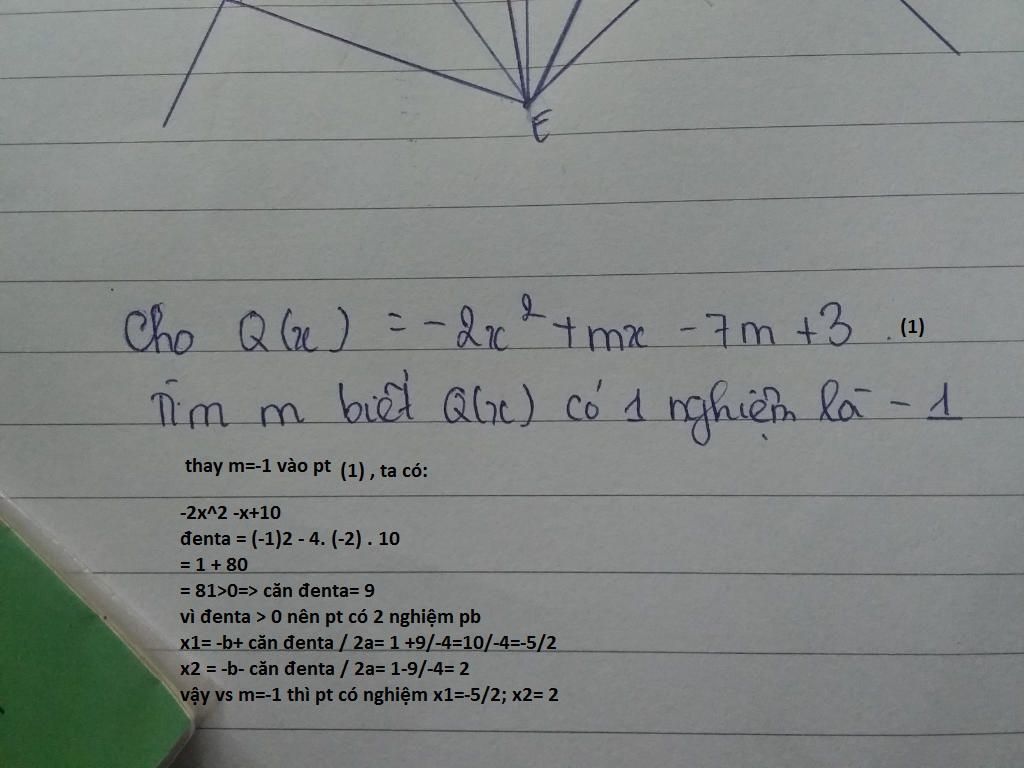 E
Cho Q(x) = -2x² + mx - 7m + 3 . (1)
Tìm m biết Q(x) có 1 nghiệm là - 1
thay m=-1 vào pt (1) , ta có:
-2x^2 -x+10
đenta = (-1)2 - 4. (-2) . 10
= 1 + 80
= 81>0=> căn đenta= 9
vì đenta > 0 nên pt có 2 nghiệm pb
x1= -b+ căn đenta / 2a= 1 +9/-4=10/-4=-5/2
x2 = -b- căn đenta / 2a= 1-9/-4= 2
vậy vs m=-1 thì pt có nghiệm x1=-5/2; x2= 2